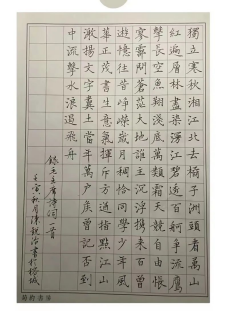 獨立寒秋湘江北去橘子洲頭看萬山
紅遍層林盡染漫江碧透百舸爭流鷹
擊長空魚翔淺底萬類霜天競自由悵
寥廓問蒼茫大地誰主沉浮携來百曾
遊憶往昔崢嶸歲月稠恰同學少年風
華正茂書生意氣揮斥方遒指點江山
激揚文字糞土當年萬户侯曾記否到
中流擊水浪遏飛舟
錄毛主席詩詞一首
壬寅秋月陳銳治書於榕城